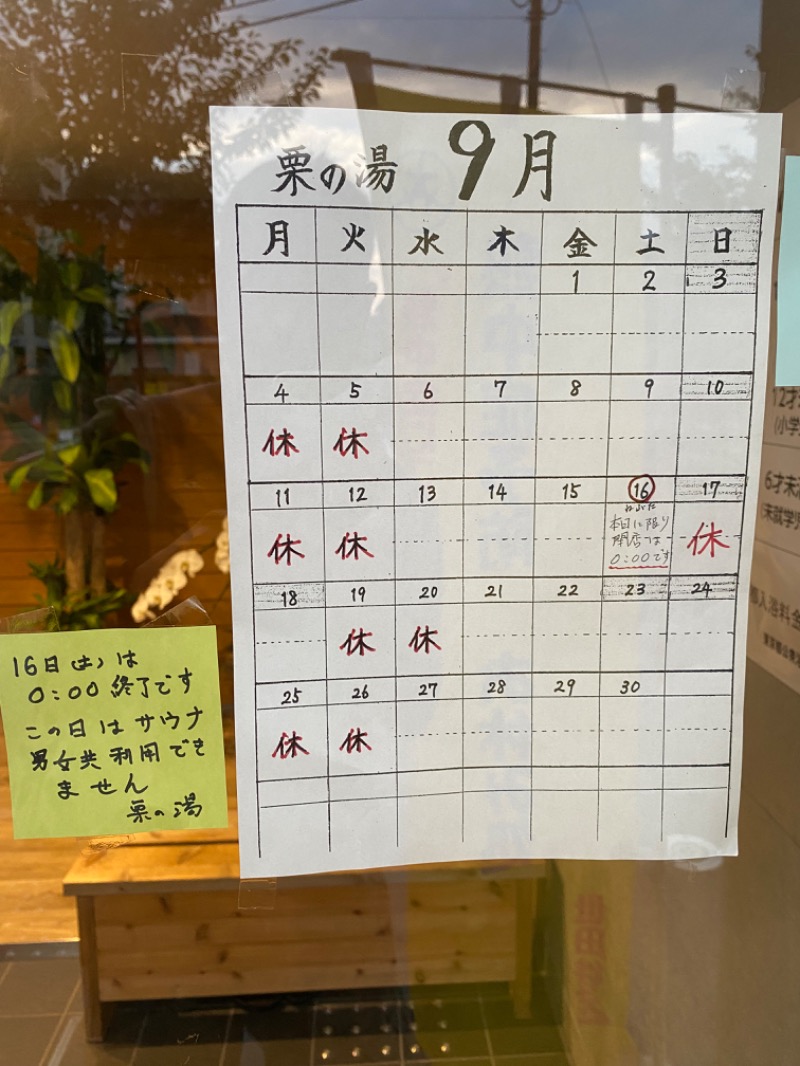 栗の湯 9月
月 火 水 木 金 土 日
1 2 3
4 5 6 7 8 9 10
休 休
11 12 13 14 15 16 17
休 休 本日に限り 休
閉店は
0:00です
18 19 20 21 22 23 24
休 休
25 26 27 28 29 30
休 休
16日(土)は
0:00 終了です
この日はサウナ
男女共利用でき
ません
栗の湯
12才
(小学
6才未
未就学
入浴料金